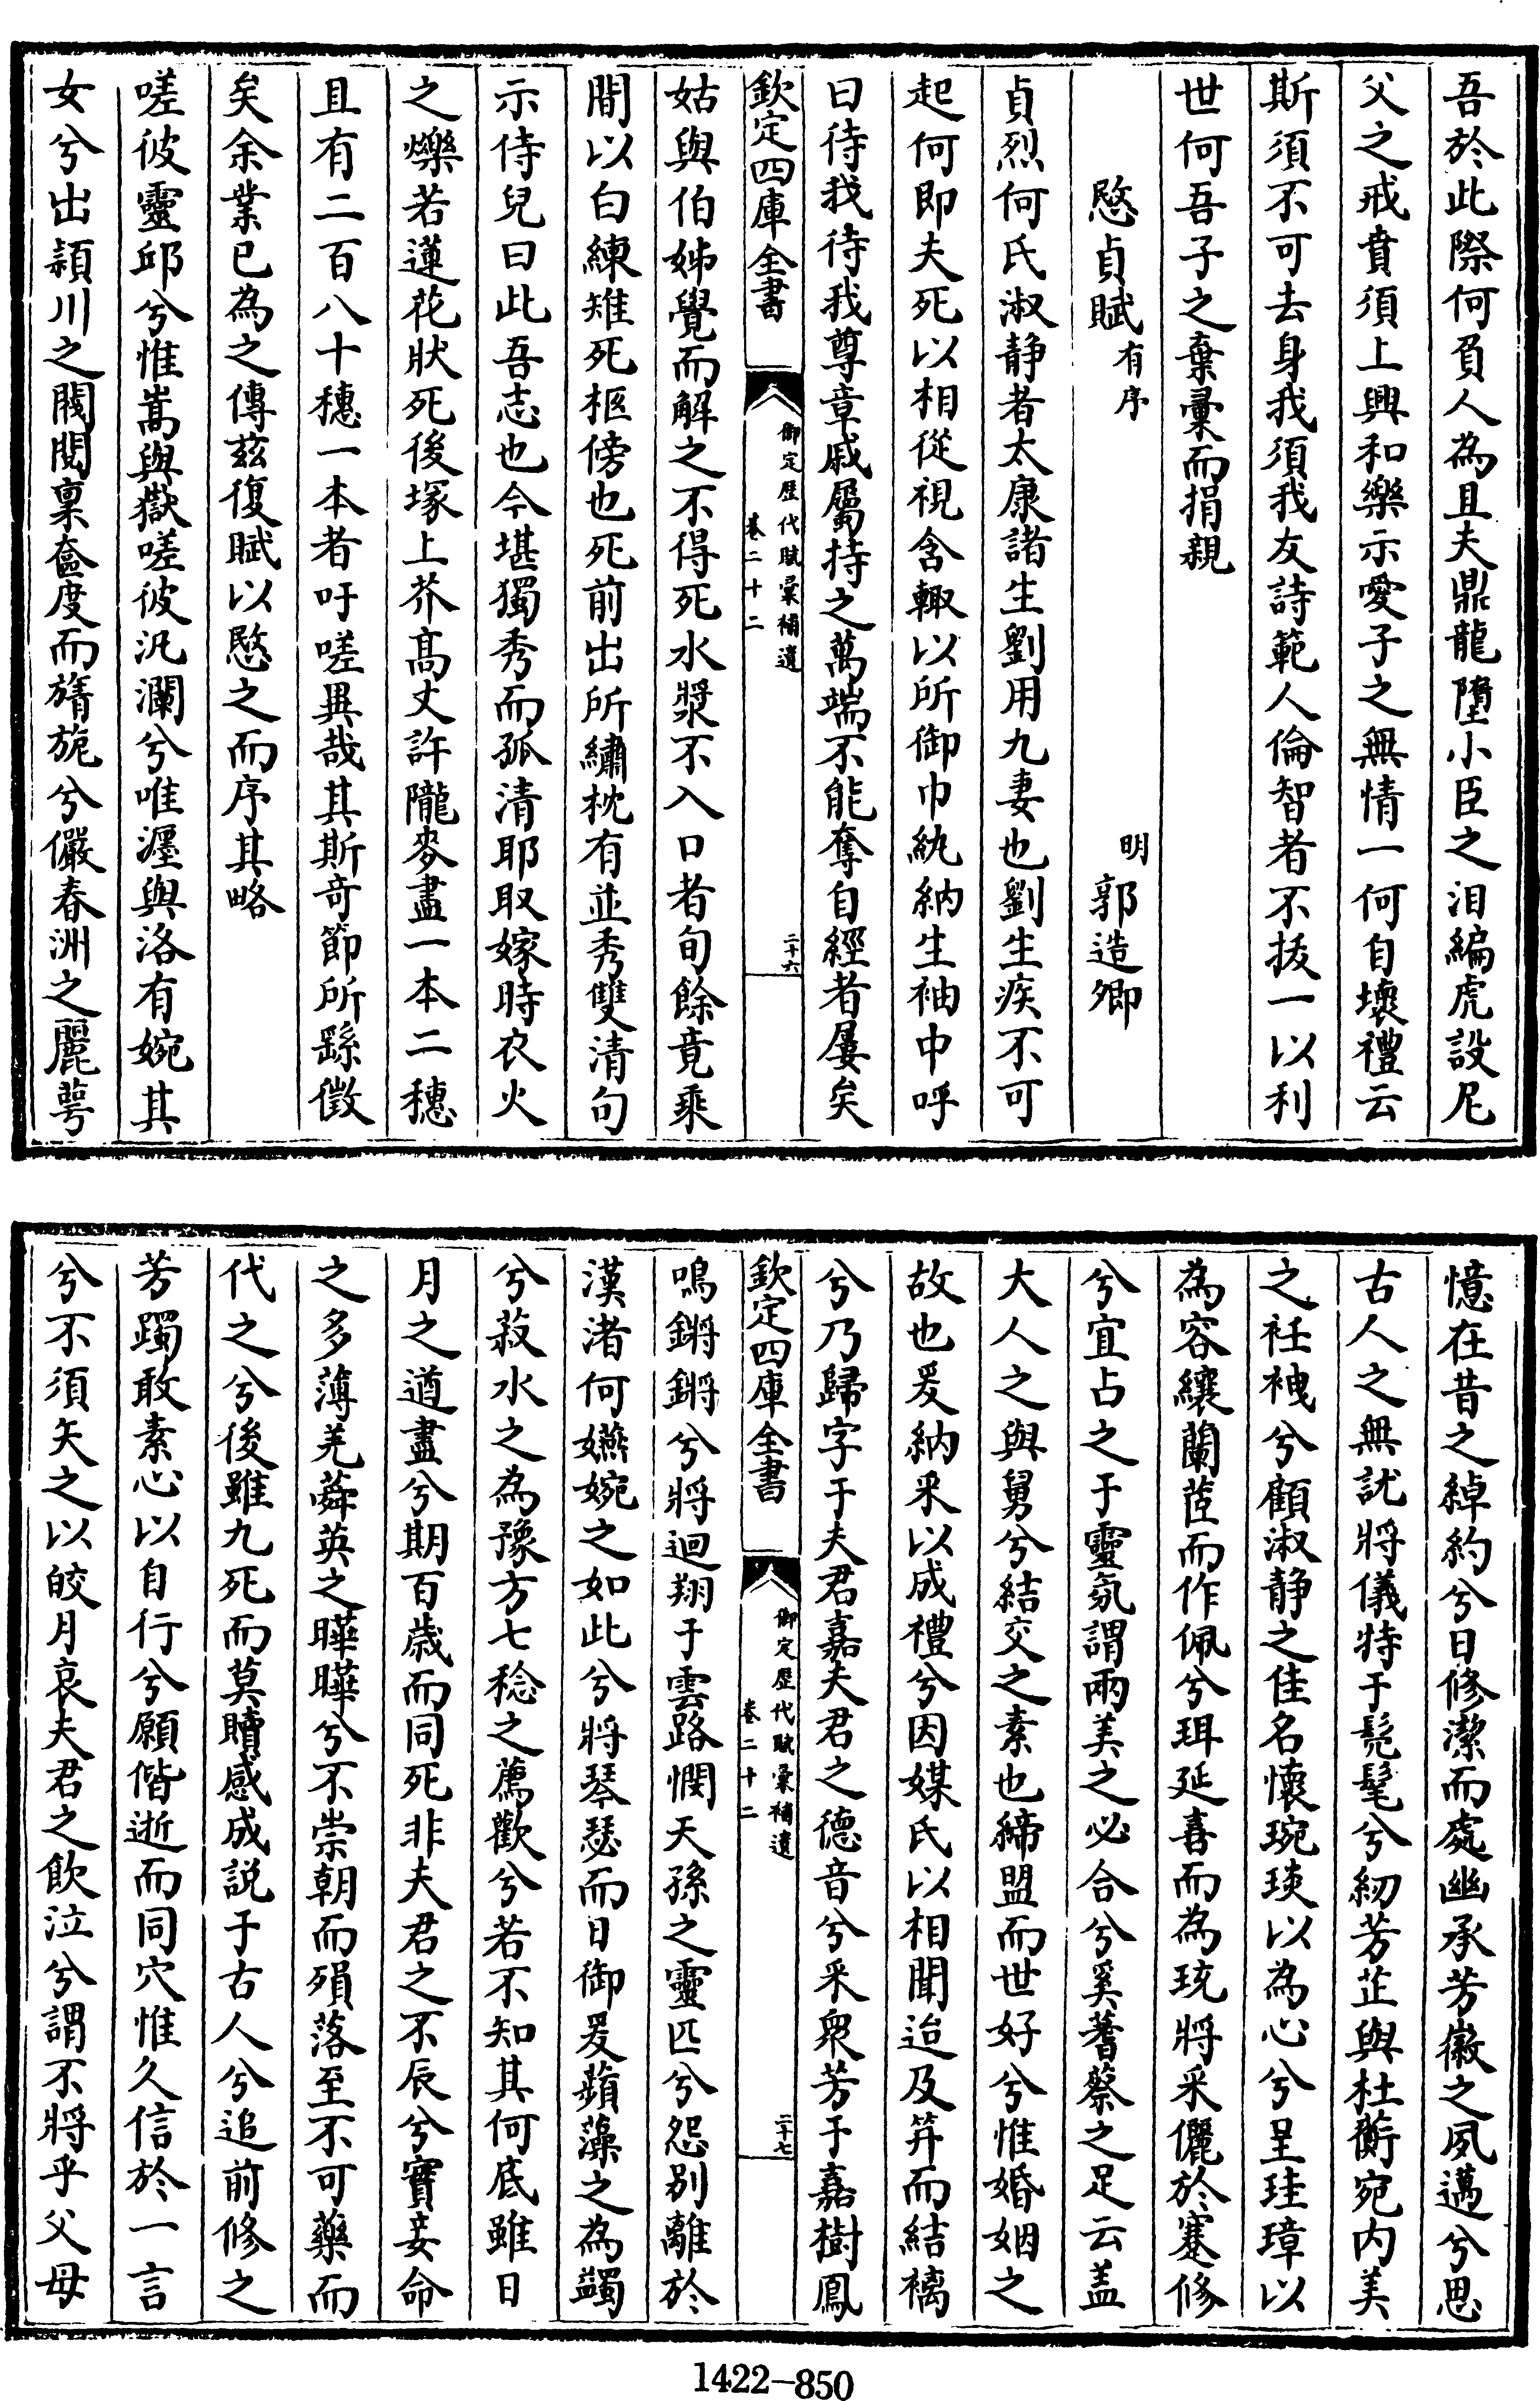 吾於此際何負人為且夫鼎龍墮小臣之泪編虎設尼
父之戒賁須上興和樂示愛子之無情一何自壞禮云
斯須不可去身我須我友詩範人倫智者不拔一以利
世何吾子之棄彙而捐親
愍貞賦有序 明郭造卿
貞烈何氏淑静者太康諸生劉用九妻也劉生疾不可
起何即夫死以相從視含輙以所御巾紈納生袖中呼
曰待我待我尊章戚屬持之萬端不能奪自經者屢矣
欽定四庫全書 御定歴代賦彙補遺 卷二十二 二十六
姑與伯姊覺而解之不得死水漿不入口者旬餘竟乘
間以白練雉死柩傍也死前出所繡枕有並秀雙清句
示侍兒曰此吾志也今堪獨秀而孤清耶取嫁時衣火
之爍若蓮花狀死後塚上芥高丈許隴麥盡一本二穗
且有二百八十穗一本者吁嗟異哉其斯奇節所繇徵
矣余業已為之傳兹復賦以愍之而序其略
嗟彼靈邱兮惟嵩與嶽嗟彼汎瀾兮唯瀍與洛有婉其
女兮出潁川之閥閱禀奩度而旖旎兮儼春洲之麗蕚
憶在昔之綽約兮日修潔而處幽承芳徽之夙邁兮思
古人之無訧將儀特于髧髦兮紉芳芷與杜蘅宛内美
之衽袡兮顧淑静之佳名懷琬琰以為心兮呈珪璋以
為容纕蘭茝而作佩兮珥延喜而為珫將采儷於蹇修
兮宜占之于靈氛謂兩美之必合兮奚蓍蔡之足云盖
大人之與舅兮結交之素也締盟而世好兮惟婚姻之
故也爰納采以成禮兮因媒氏以相聞迨及笄而結褵
兮乃歸字于夫君嘉夫君之德音兮采衆芳于嘉樹鳳
欽定四庫全書 御定歴代賦彙補遺 卷二十二 二十七
鳴鏘鏘兮將迴翔于雲路憫天孫之靈匹兮怨别離於
漢渚何嬿婉之如此兮將琴瑟而日御爰蘋藻之為蠲
兮菽水之為豫方七稔之薦歡兮若不知其何底雖日
月之遒盡兮期百歲而同死非夫君之不辰兮實妾命
之多薄羌蕣英之曄曄兮不崇朝而殞落至不可藥而
代之兮後雖九死而莫贖感成説于古人兮追前修之
芳躅敢素心以自行兮願偕逝而同穴惟久信於一言
兮不須矢之以皎月哀夫君之飲泣兮謂不將乎父母
1422-850